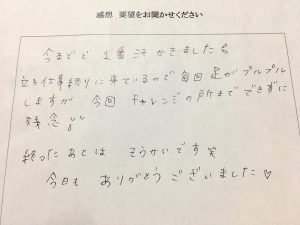 感想 要望をお聞かせください
今までで 1番 汗かきました💦
立ち仕事終りに来ているので毎回 足がプルプル
しますが 今回 チャレンジの所まで できずに
残念!!
終ったあとは そうかいです笑
今日も ありがとう ございました♡